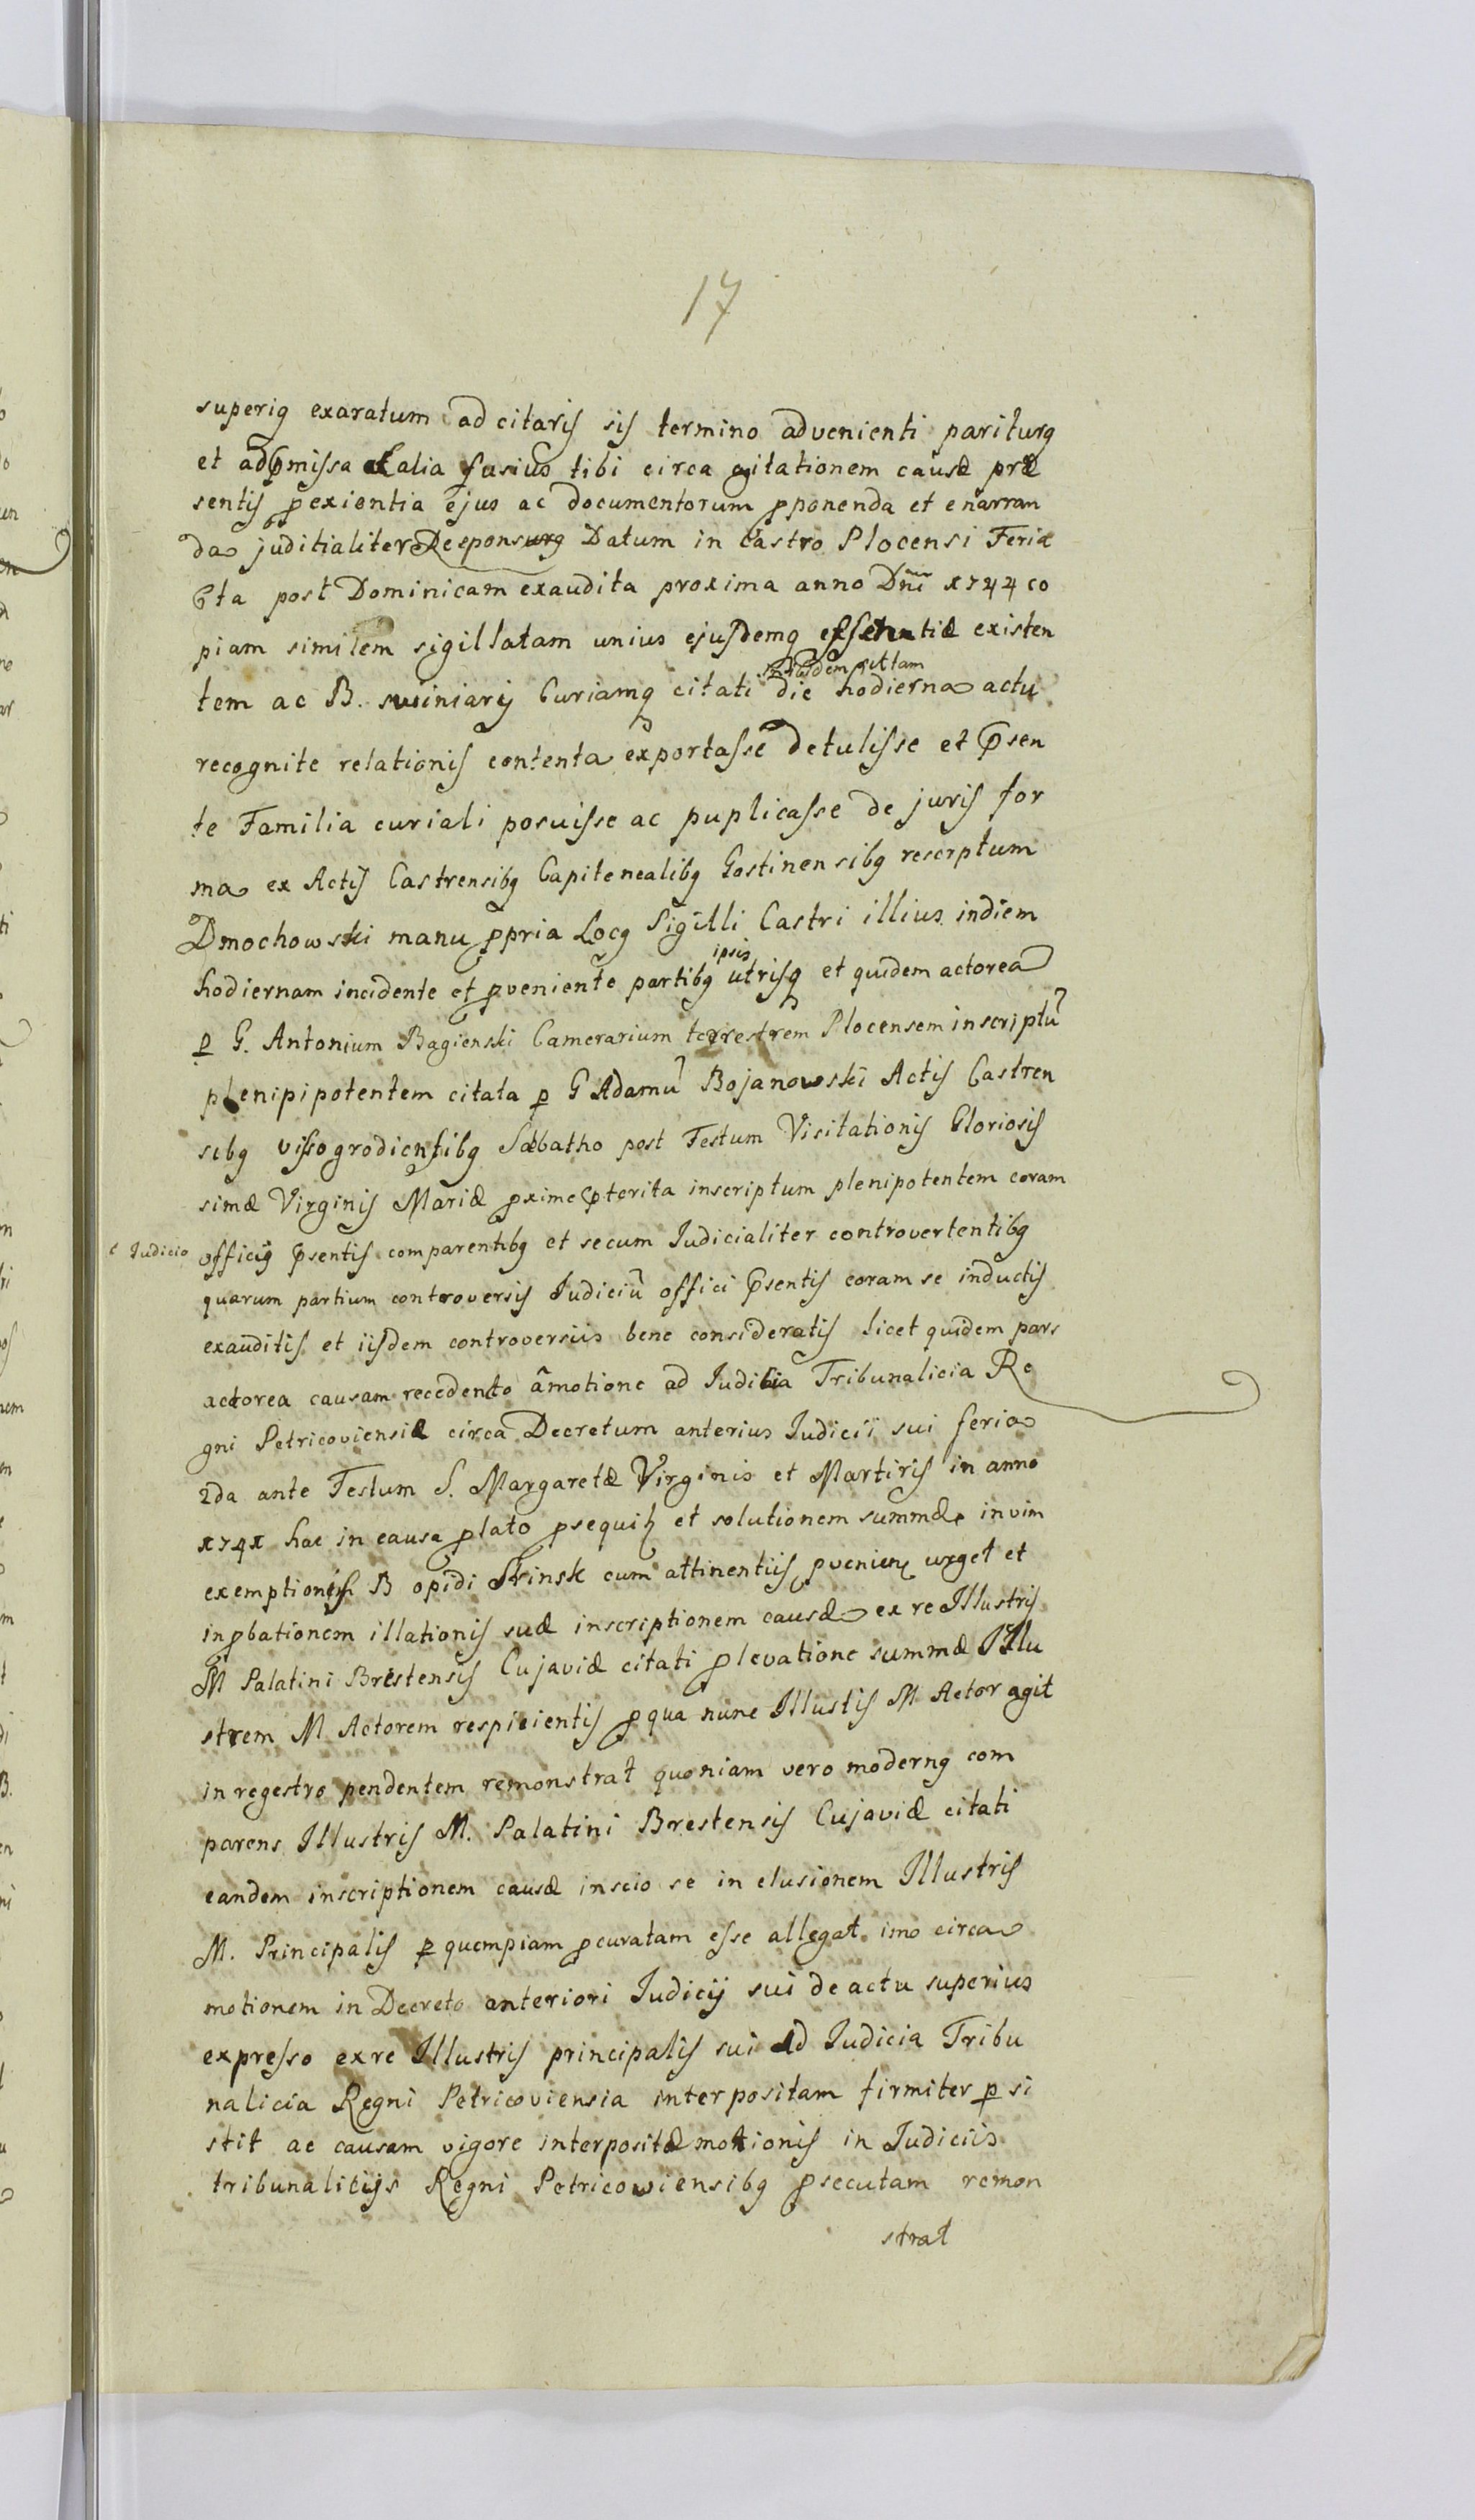 17
superiꝯ exaratum ad citaris sis termino advenienti pariturꝯ
et ad p̄missa et alia fusius tibi circa agitationem causæ præ
sentis ꝑ exientia ejus ac documentorum ꝓponenda et enarran
da juditialiter Responsurꝯ Datum in Castro Plocensi Feria
6ta post Dominicam exaudita proxima anno Dn̄i 1744 co
piam similem sigillatam unius ejusdemq essentiæ existen
tem ac B. swiniary Curiamq citati die hodierna actu
recognite relationis contenta exportasse detulisse et p̄sen
te Familia curiali posuisse ac puplicasse de juris for
ma ex Actis Castrensibꝯ Capitenealibꝯ Gostinensibꝯ rescrptum
Dmochowski manu ꝓpria Locꝯ Sigilli Castri illius indiem
ipsis
hodiernam incidente et ꝓveniente partibꝯ utrisq et quidem actorea
ꝑ G. Antonium Bagienski Camerarium terrestrem Plocensem inscriptū
plenipipotentem citata ꝑ G Adamū Bojanowski Actis Castren
sibꝯ vissogrodiensibꝯ Sabbatho post Festum Visitationis Gloriosis
simæ Virginis Mariæ ꝓxime p̄terita inscriptum plenipotentem coram
e Judicio
officij p̄sentis comparentibꝯ et secum Judicialiter controvertentibꝯ
quarum partium controversis Judiciū offici p̄sentis coram se inductis
exauditis et iisdem controversiis bene consideratis licet quidem pars
actorea causam recedendo āmotione ad Judicia Tribunalicia Re
gni Petricoviensia circa Decretum anterius Judicii sui feria
2da ante Festum S. Margaretæ Virginis et Martiris in anno
1741 hac in causa ꝓlato ꝓsequit et solutionem summæ invim
exemptionis B opidi Skinsk cum attinentiis ꝓvenien urget et
in ꝓbationem illationis suæ inscriptionem causæ ex re Illustris
M Palatini Brestensis Cujaviæ citati ꝓ levatione summæ Illu
strem M. Actorem respicientis ꝓ qua nunc Illustis M Actor agit
in regestro pendentem remonstrat quoniam vero modernꝯ com
parens Illustris M. Palatini Brestensis Cujaviæ citati
eandem inscriptionem causæ inscio se in elusionem Illustris
M. Principalis ꝑ quempiam ꝓcuratam esse allegat imo circa
motionem in Decreto anteriori Judicij sui de actu superius
expresso exre Illustris principalis sui ad Judicia Tribu
nalicia Regni Petricoviensia interpositam firmiter ꝑ si
stit ac causam vigore interpositæ motionis in Judiciis
tribunalicijs Regni Petricowiensibꝯ ꝓsecutam remon
strat